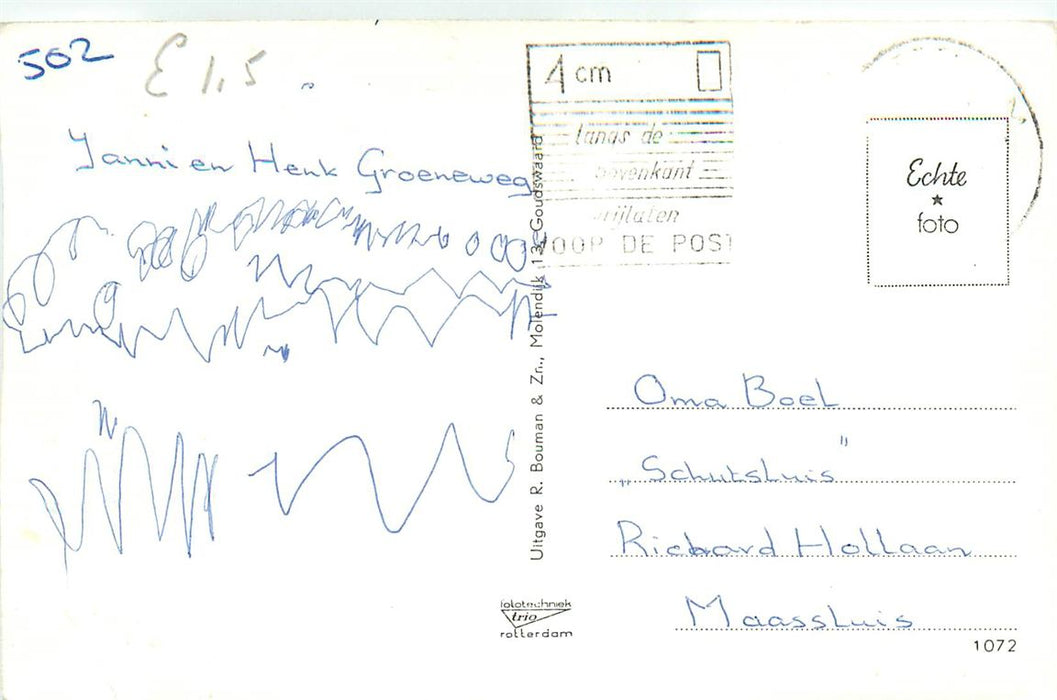 502
E 1,5
4 cm
langs de
bovenkant
vrijlaten
VOOR DE POST
Echte
foto
Janni en Henk Groeneweg
Uitgave R. Bouman & Zn., Molendijk 13, Goudswaard
Oma Boel
„Schutsluis"
Richard Hollaan
Maassluis
fototechniek
trio
rotterdam
1072